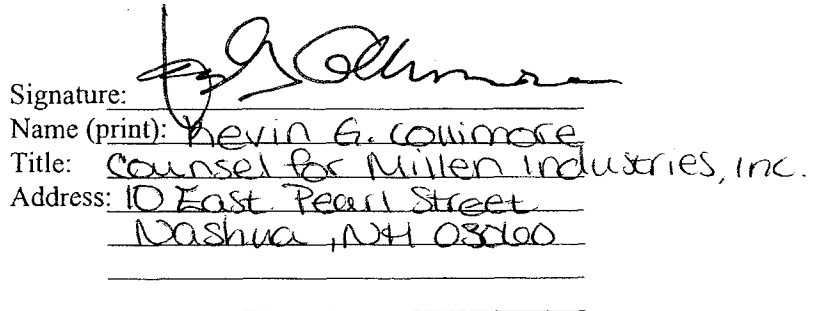 Signature:
Name (print): Kevin G. Collimore
Title: Counsel for Millen Industries, Inc.
Address: 10 East Pearl Street
Nashua, NH 03060